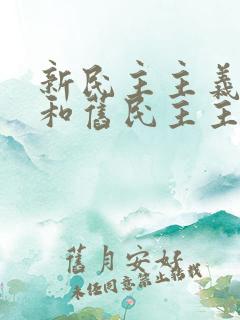 新民主主義
和舊民主主
舊月安好
未任同意禁止轉載